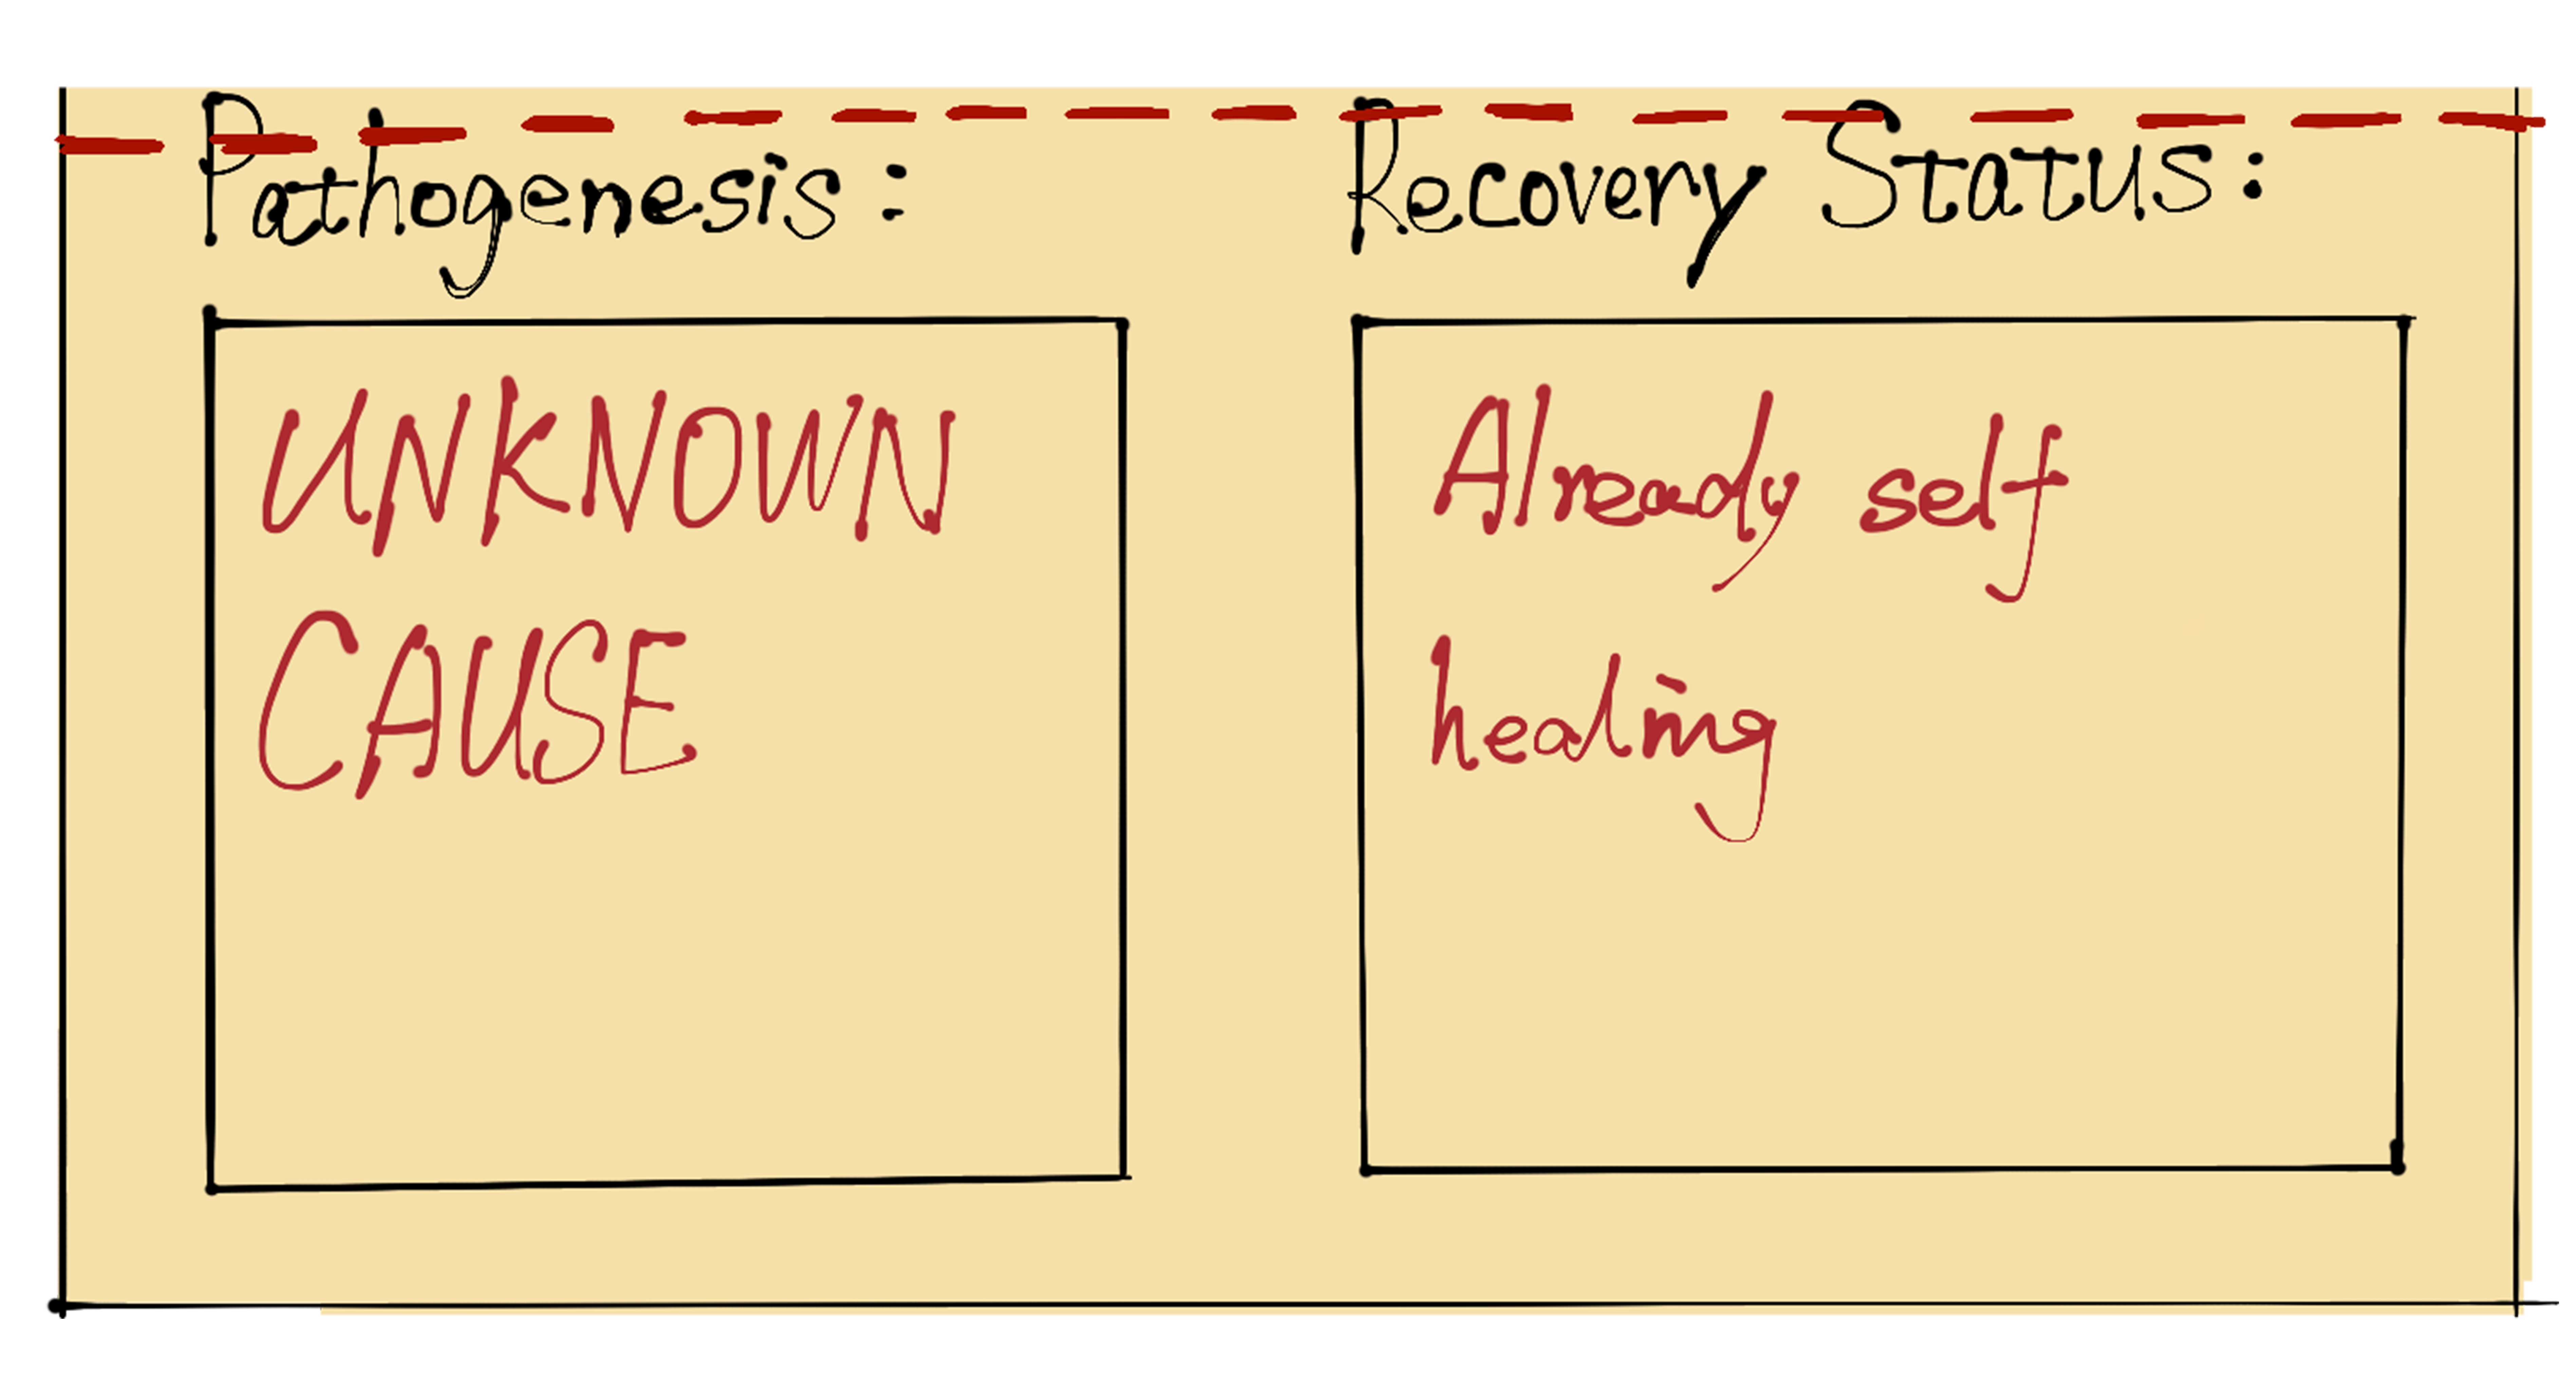 Pathogenesis:
UNKNOWN
CAUSE
Recovery Status:
Already self
healing